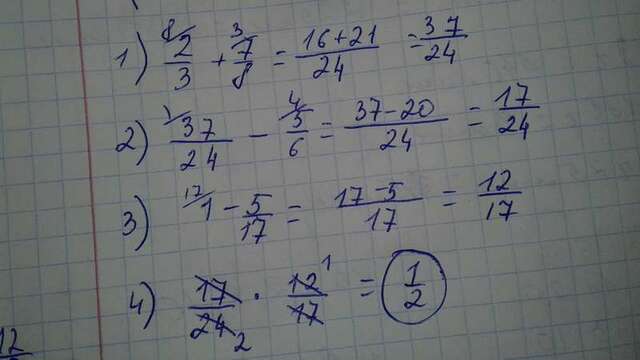 1) ⁸/2/3 + ³/7/8 = 16+21/24 = 37/24
2) ¹/37/24 - ⁴/5/6 = 37-20/24 = 17/24
3) ¹⁷/1 - 5/17 = 17-5/17 = 12/17
4) 17/24 2 · 12 1/17 = 1/2
12